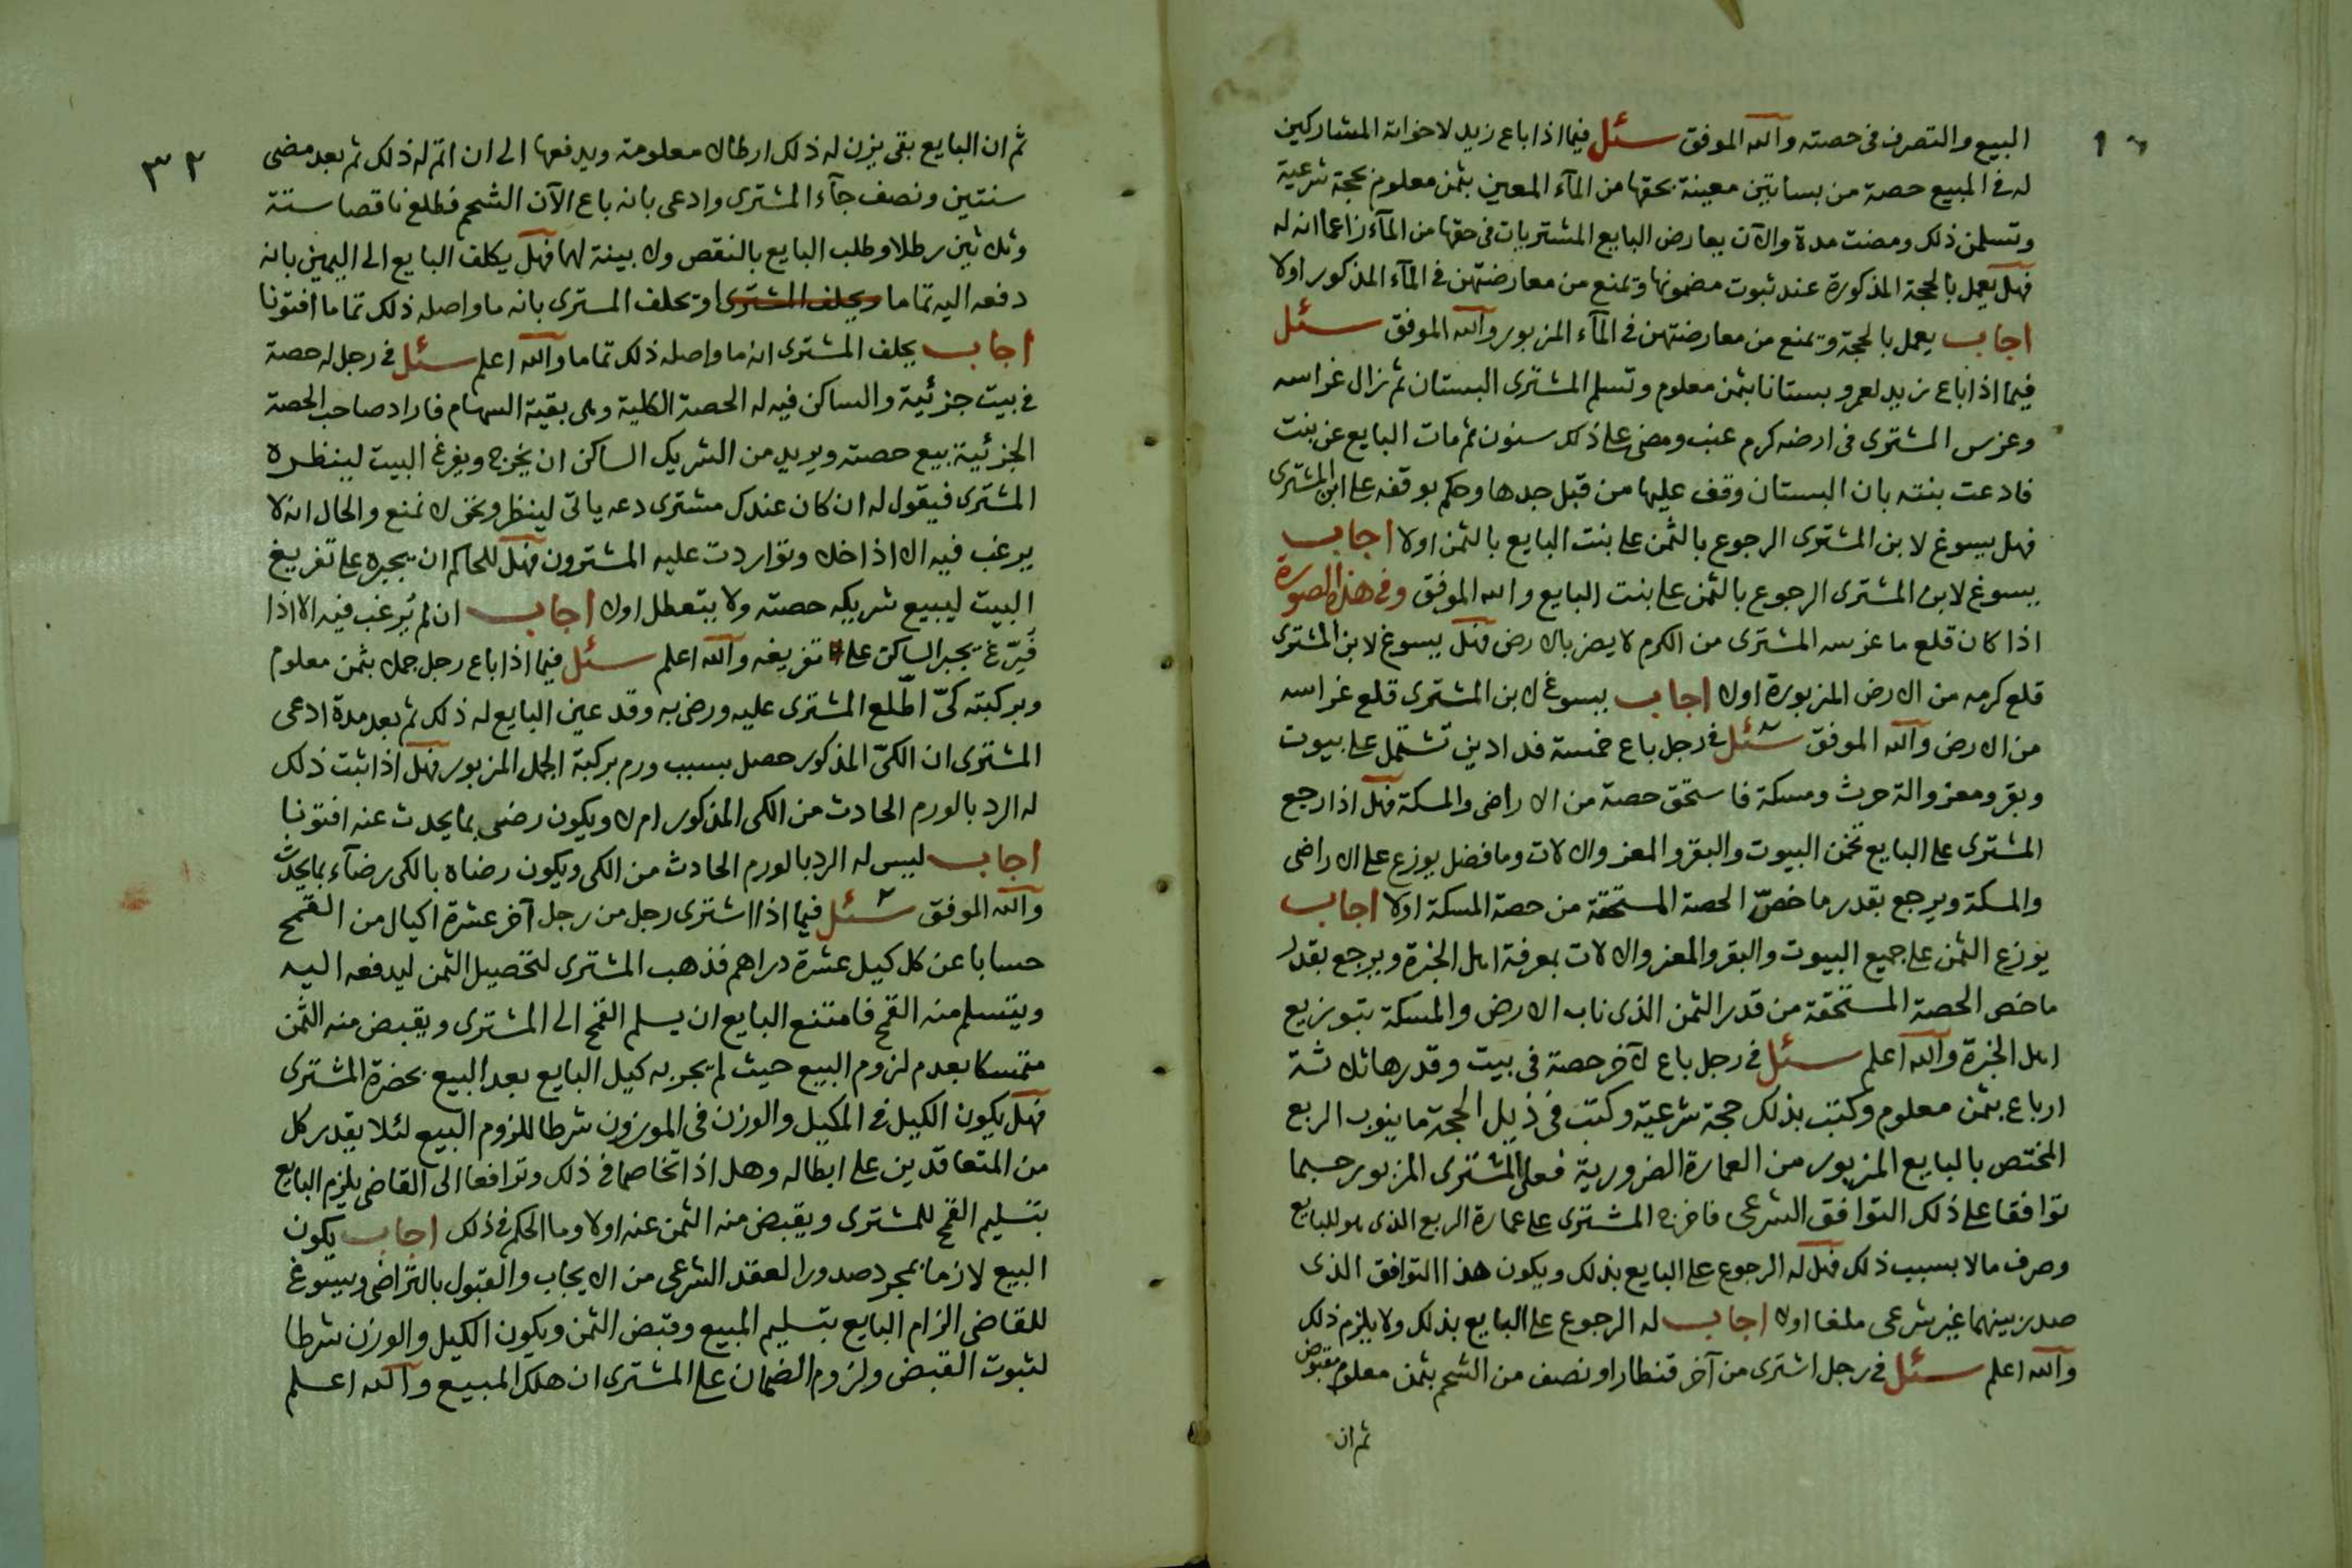 البيع والتصرف في حصته والله الموفق سئل فيما اذا باع زيد لاخواته المشاركين
له في المبيع حصة من بساتين معينة بحقها من المآء المعين بثمن معلوم بحجة شرعية
وتسلمن ذلك ومضت مدة والآن يعارض البايع المشتريات في حقها من المآء زاعما انه له
فهل يعمل بالحجة المذكورة عند ثبوت مضمونها ويمنع من معارضتهن في المآء المذكور اولا
اجاب يعمل بالحجة ويمنع من معارضتهن في المآء المزبور والله الموفق سئل
فيما اذا باع زيد لعمرو بستانا بثمن معلوم وتسلم المشترى البستان ثم زال غراسه
وغرس المشترى في ارضه كرم عنب ومضى على ذلك سنون ثم مات البايع عن بنت
فادعت بنته بان البستان وقف عليها من قبل جدها وحكم بوقفه على ابن المشترى
فهل يسوغ لابن المشترى الرجوع بالثمن على بنت البايع بالثمن اولا اجاب
يسوغ لابن المشترى الرجوع بالثمن على بنت البايع والله الموفق وفي هذه الصورة
اذا كان قلع ما غرسه المشترى من الكرم لا يضر بالارض فهل يسوغ لابن المشترى
قلع كرمه من الارض المزبورة اولا اجاب يسوغ لابن المشترى قلع غراسه
من الارض والله الموفق سئل في رجل باع خمسة فدادين تشتمل على بيوت
وبقر ومعز والة حرث ومسكة فاستحق حصة من الاراضى والمسكة فهل اذا رجع
المشترى على البايع تخمن البيوت والبقر والمعز والالات وما فضل يوزع على الاراضى
والمسكة ويرجع بقدر ما خصّ الحصة المستحقة من حصة المسكة اولا اجاب
يوزع الثمن على جميع البيوت والبقر والمعز والالات بمعرفة اهل الخبرة ويرجع بقدر
ما خص الحصة المستحقة من قدر الثمن الذى ناب الارض والمسكة بتوزيع
اهل الخبرة والله اعلم سئل في رجل باع لآخر حصة في بيت وقدرها ثلاثة
ارباع بثمن معلوم وكتب بذلك حجة شرعية وكتب في ذيل الحجة ما ينوب الربع
المختص بالبايع المزبور من العمارة الضرورية فعلى المشترى المزبور حسبما
توافقا على ذلك التوافق الشرعى فاخرج المشترى على عمارة الربع الذى هو للبايع
وصرف مالا بسبب ذلك فهل له الرجوع على البايع بذلك ويكون هذا التوافق الذى
صدر بينهما غير شرعى ملغا اولا اجاب له الرجوع على البايع بذلك ولا يلزم ذلك
والله اعلم سئل في رجل اشترى من آخر قنطارا ونصف من الشحم بثمن معلوم مقبوض
ثم ان
٣٢
ثم ان البايع بقى يزن له ذلك ارطال معلومة ويدفعها الى ان اتم له ذلك ثم بعد مضى
سنتين ونصف جآء المشترى وادعى بانه باع الآن الشحم فطلع ناقصا ستة
وثلاثين رطلا وطلب البايع بالنقص ولا بينة لهما فهل يكلف البايع الى اليمين بانه
دفعه اليه تماما ويحلف المشترى او يحلف المشترى بانه ما واصله ذلك تماما افتونا
اجاب يحلف المشترى انه ما واصله ذلك تماما والله اعلم سئل في رجل له حصة
في بيت جزئية والساكن فيه له الحصة الكلية وهى بقية السهام فاراد صاحب الحصة
الجزئية بيع حصته ويريد من الشريك الساكن ان يخرج ويفرغ البيت لينظره
المشترى فيقول له ان كان عندك مشترى دعه ياتى لينظر ونحن لا نمنع والحال انه لا
يرغب فيه الا اذا خلا وتواردت عليه المشترون فهل للحاكم ان يجبره على تفريغ
البيت ليبيع شريكه حصته ولا يتعطل اولا اجاب ان لم يُرغب فيه الا اذا
فُرِّغ يجبر الساكن على تفريغه والله اعلم سئل فيما اذا باع رجل جمل بثمن معلوم
وبركبته كىّ اطّلع المشترى عليه ورضى به وقد عين البايع له ذلك ثم بعد مدة ادعى
المشترى ان الكىّ المذكور حصل بسبب ورم بركبة الجمل المزبور فهل اذا ثبت ذلك
له الرد بالورم الحادث من الكى المذكور ام لا ويكون رضى بما يحدث عنه افتونا
اجاب ليس له الرد بالورم الحادث من الكى ويكون رضاه بالكى رضآء بما يحدث
والله الموفق سئل فيما اذا اشترى رجل من رجل آخر عشرة اكيال من القمح
حسابا عن كل كيل عشرة دراهم فذهب المشترى لتحصيل الثمن ليدفعه اليه
ويتسلم منه القمح فامتنع البايع ان يسلم القمح الى المشترى ويقبض منه الثمن
متمسكا بعدم لزوم البيع حيث لم يجر به كيل البايع بعد البيع بحضرة المشترى
فهل يكون الكيل في المكيل والوزن في الموزون شرطا للزوم البيع لئلا يقدر كل
من المتعاقدين على ابطاله وهل اذا تخاصما في ذلك وترافعا الى القاضى يلزم البايع
بتسليم القمح للمشترى ويقبض منه الثمن عنه اولا وما الحكم في ذلك اجاب يكون
البيع لازما بمجرد صدور العقد الشرعى من الايجاب والقبول بالتراضى ويسوغ
للقاضى الزام البايع بتسليم المبيع وقبض الثمن ويكون الكيل والوزن شرطا
لثبوت القبض ولزوم الضمان على المشترى ان هلك المبيع والله اعلم